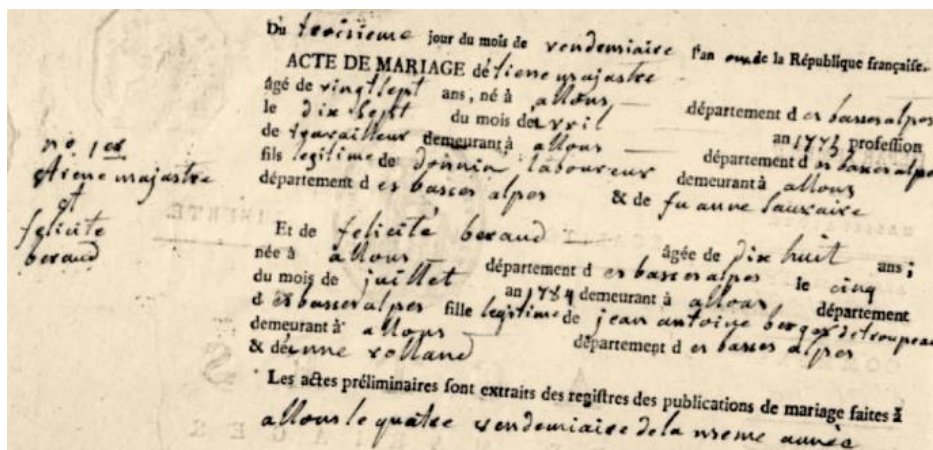 Du troisieme jour du mois de vendemiaire l'an onze de la République française.
ACTE DE MARIAGE de tiene majastre
âgé de vingtsept ans, né à allons département d es basses alpes
le dix sept du mois de avril an 1775 profession
de travailleur demeurant à allons département d es basses alpes
fils legitime de donnin laboureur demeurant à allons
département d es basses alpes & de fu anne sauvaire
no 1er
etiene majastre
et
felicite
beraud
Et de felicité beraud âgée de dix huit ans;
née à allons département d es basses alpes le cinq
du mois de juillet an 1784 demeurant à allons département
d es basses alpes fille legitime de jean antoine berger de troupeau
demeurant à allons département d es basses alpes
& de anne rolland
Les actes préliminaires sont extraits des registres des publications de mariage faites à
allons le quatre vendemiaire de la meme année